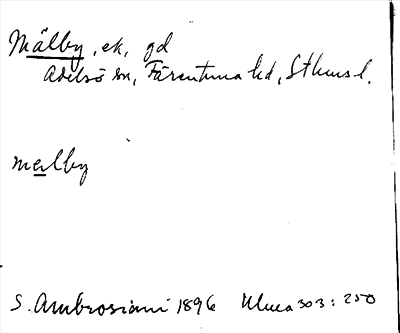 Mälby, ek, gd
Adelsö sn, Färentuna hd, Sthms l.
melby
S. Ambrosiani 1896 Uluca 303: 250